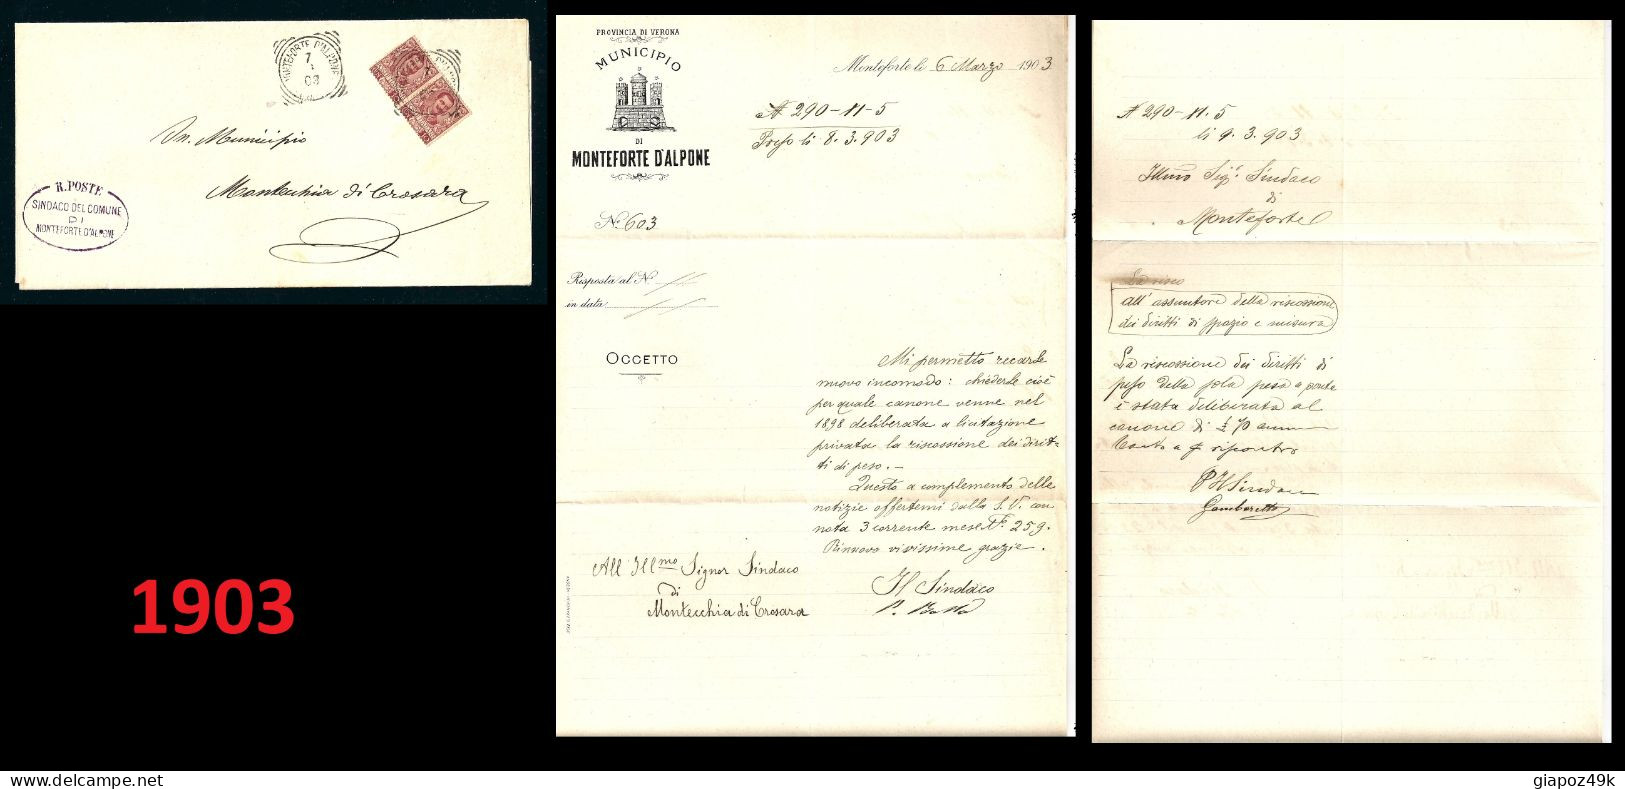 MONTEFORTE D'ALPONE
7
03
In. Municipio
Montecchia di Crosara
R. POSTE
SINDACO DEL COMUNE
DI
MONTEFORTE D'ALPONE
1903
PROVINCIA DI VERONA
MUNICIPIO
DI
MONTEFORTE D'ALPONE
Monteforte li 6 Marzo 1903
N 290-11-5
Preso li 8.3.903
N. 603
Risposta al N.
in data
OGGETTO
Mi permetto recarle
nuovo incomodo: chiederle cioè
per quale canone venne nel
1898 deliberata a licitazione
privata la riscossione dei dirit-
ti di peso. —
Questo a complemento delle
notizie offertemi dalla S. V. con
nota 3 corrente mese N. 259.
Rinnovo vivissime grazie.
All' Ill.mo Signor Sindaco
di
Montecchia di Crosara
Il Sindaco
N 290-11.5
li 9.3.903
Illmo Sig. Sindaco
di
Monteforte
La risco
all' assuntore della riscossione
dei diritti di spazio e misura
La riscossione dei diritti di
peso della sola pesa a ponte
è stata deliberata al
canone di £ 70
riscontro
Il Sindaco
Gambaretto
giapoz49k